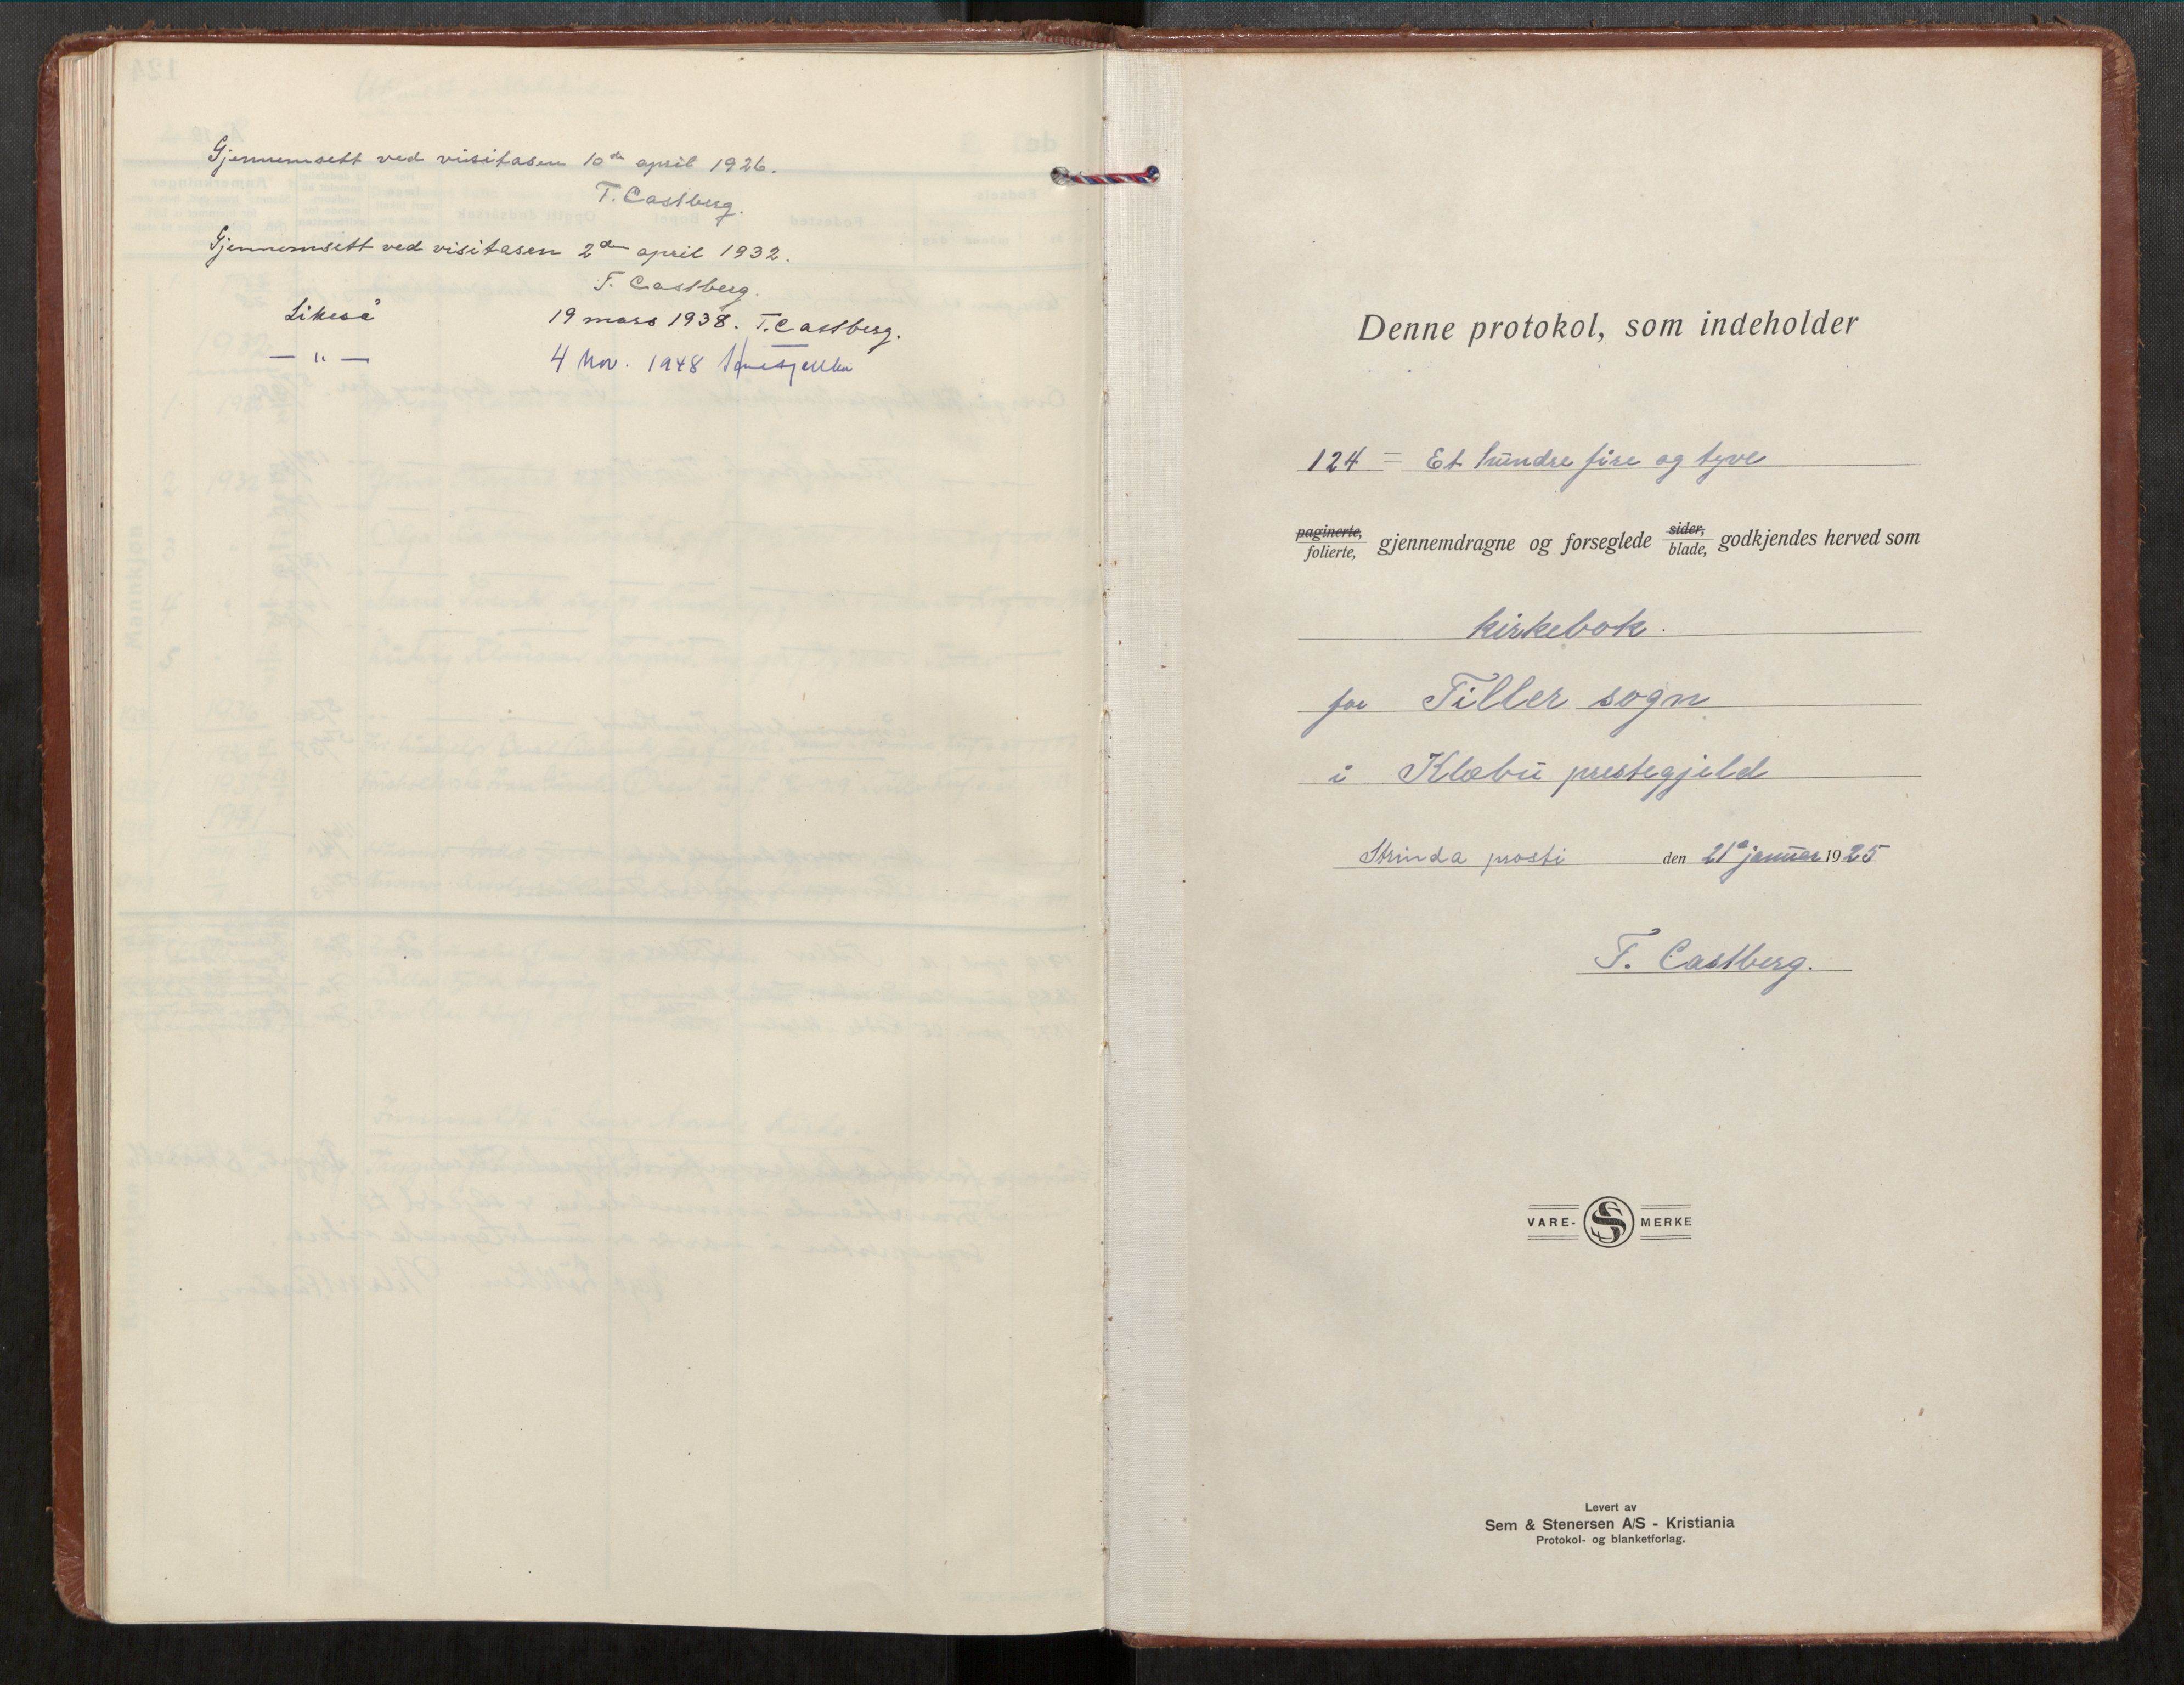 Gjennemsett ved visitasen 10de april 1926.
T. Castberg.
Gjennemsett ved visitasen 2den april 1932.
T. Castberg.
Likeså 19 mars 1938. T. Castberg.
— " — 4 Nov. 1948
Denne protokol, som indeholder
124 = Et hundre fire og tyve
paginerte, folierte, gjennemdragne og forseglede sider, blade, godkjendes herved som
kirkebok.
for Tiller sogn
i Klæbu prestegjeld
Strinda prosti den 21de januar 1925
T. Castberg.
VARE- S MERKE
Levert av
Sem & Stenersen A/S - Kristiania
Protokol- og blanketforlag.